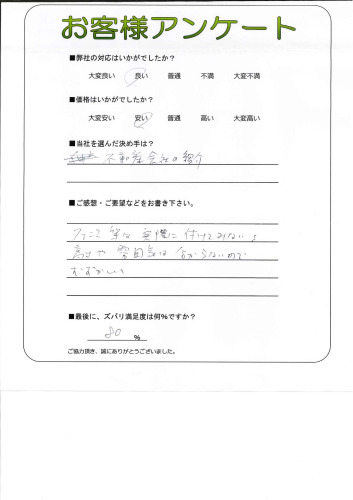 お客様アンケート
■弊社の対応はいかがでしたか？
大変良い 良い 普通 不満 大変不満
■価格はいかがでしたか？
大変安い 安い 普通 高い 大変高い
■当社を選んだ決め手は？
不動産会社の紹介
■ご感想・ご要望などをお書き下さい。
フェンス等は実際に付けてみないと
高さや雰囲気は分からないので
むずかしい
■最後に、ズバリ満足度は何%ですか？
80 %
ご協力頂き、誠にありがとうございました。